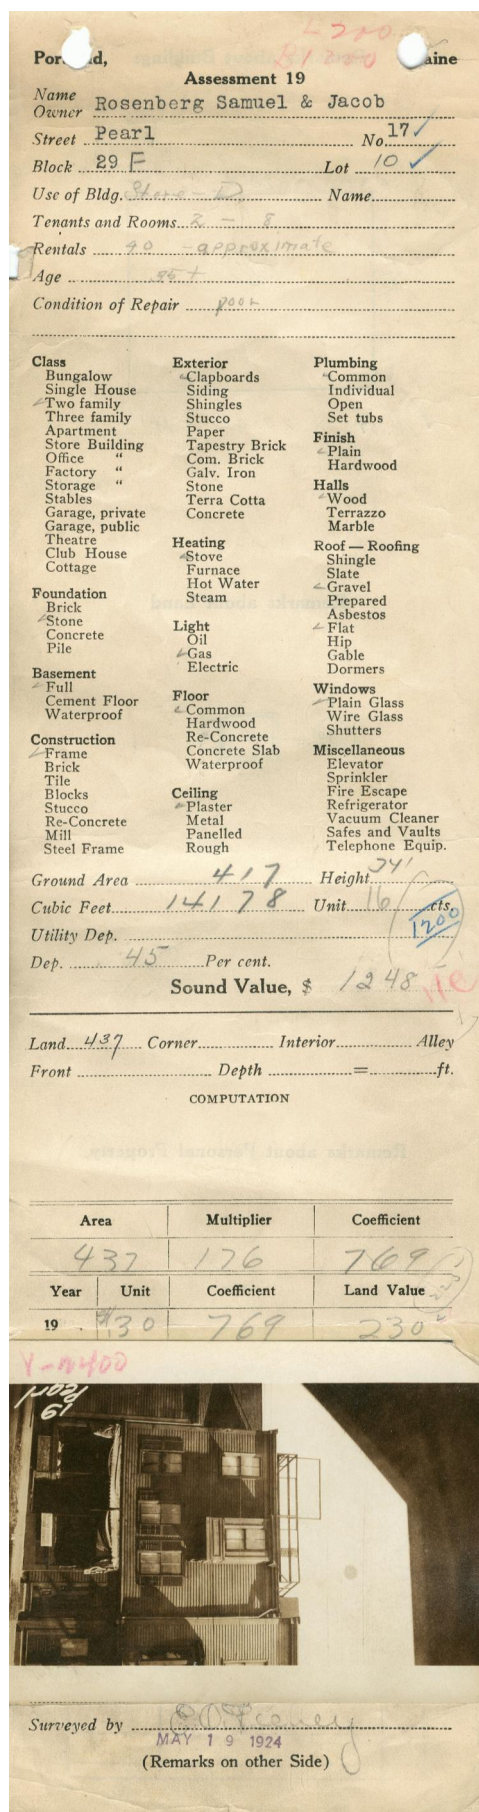 L 200
B 1200
Portland, Maine
Assessment 19
Name
Owner Rosenberg Samuel & Jacob
Street Pearl No. 17 ✓
Block 29 F Lot 10 ✓
Use of Bldg. Store - D. Name
Tenants and Rooms 2 - 8
Rentals 40 - approximate
Age 35 +
Condition of Repair poor
Class
Bungalow
Single House
✓ Two family
Three family
Apartment
Store Building
Office "
Factory "
Storage "
Stables
Garage, private
Garage, public
Theatre
Club House
Cottage
Foundation
Brick
✓ Stone
Concrete
Pile
Basement
✓ Full
Cement Floor
Waterproof
Construction
✓ Frame
Brick
Tile
Blocks
Stucco
Re-Concrete
Mill
Steel Frame
Exterior
✓ Clapboards
Siding
Shingles
Stucco
Paper
Tapestry Brick
Com. Brick
Galv. Iron
Stone
Terra Cotta
Concrete
Heating
✓ Stove
Furnace
Hot Water
Steam
Light
Oil
✓ Gas
Electric
Floor
✓ Common
Hardwood
Re-Concrete
Concrete Slab
Waterproof
Ceiling
✓ Plaster
Metal
Panelled
Rough
Plumbing
✓ Common
Individual
Open
Set tubs
Finish
✓ Plain
Hardwood
Halls
✓ Wood
Terrazzo
Marble
Roof — Roofing
Shingle
Slate
✓ Gravel
Prepared
Asbestos
✓ Flat
Hip
Gable
Dormers
Windows
✓ Plain Glass
Wire Glass
Shutters
Miscellaneous
Elevator
Sprinkler
Fire Escape
Refrigerator
Vacuum Cleaner
Safes and Vaults
Telephone Equip.
Ground Area 417 Height 34'
Cubic Feet 14178 Unit 16 cts.
1200
Utility Dep.
Dep. 45 Per cent.
Sound Value, $ 1248
Land 437 Corner Interior Alley
Front Depth = ft.
COMPUTATION
Area Multiplier Coefficient
437 176 769
Year Unit Coefficient Land Value
19 $.30 769 230
Y-2400
Pearl
19
Surveyed by
MAY 19 1924
(Remarks on other Side)